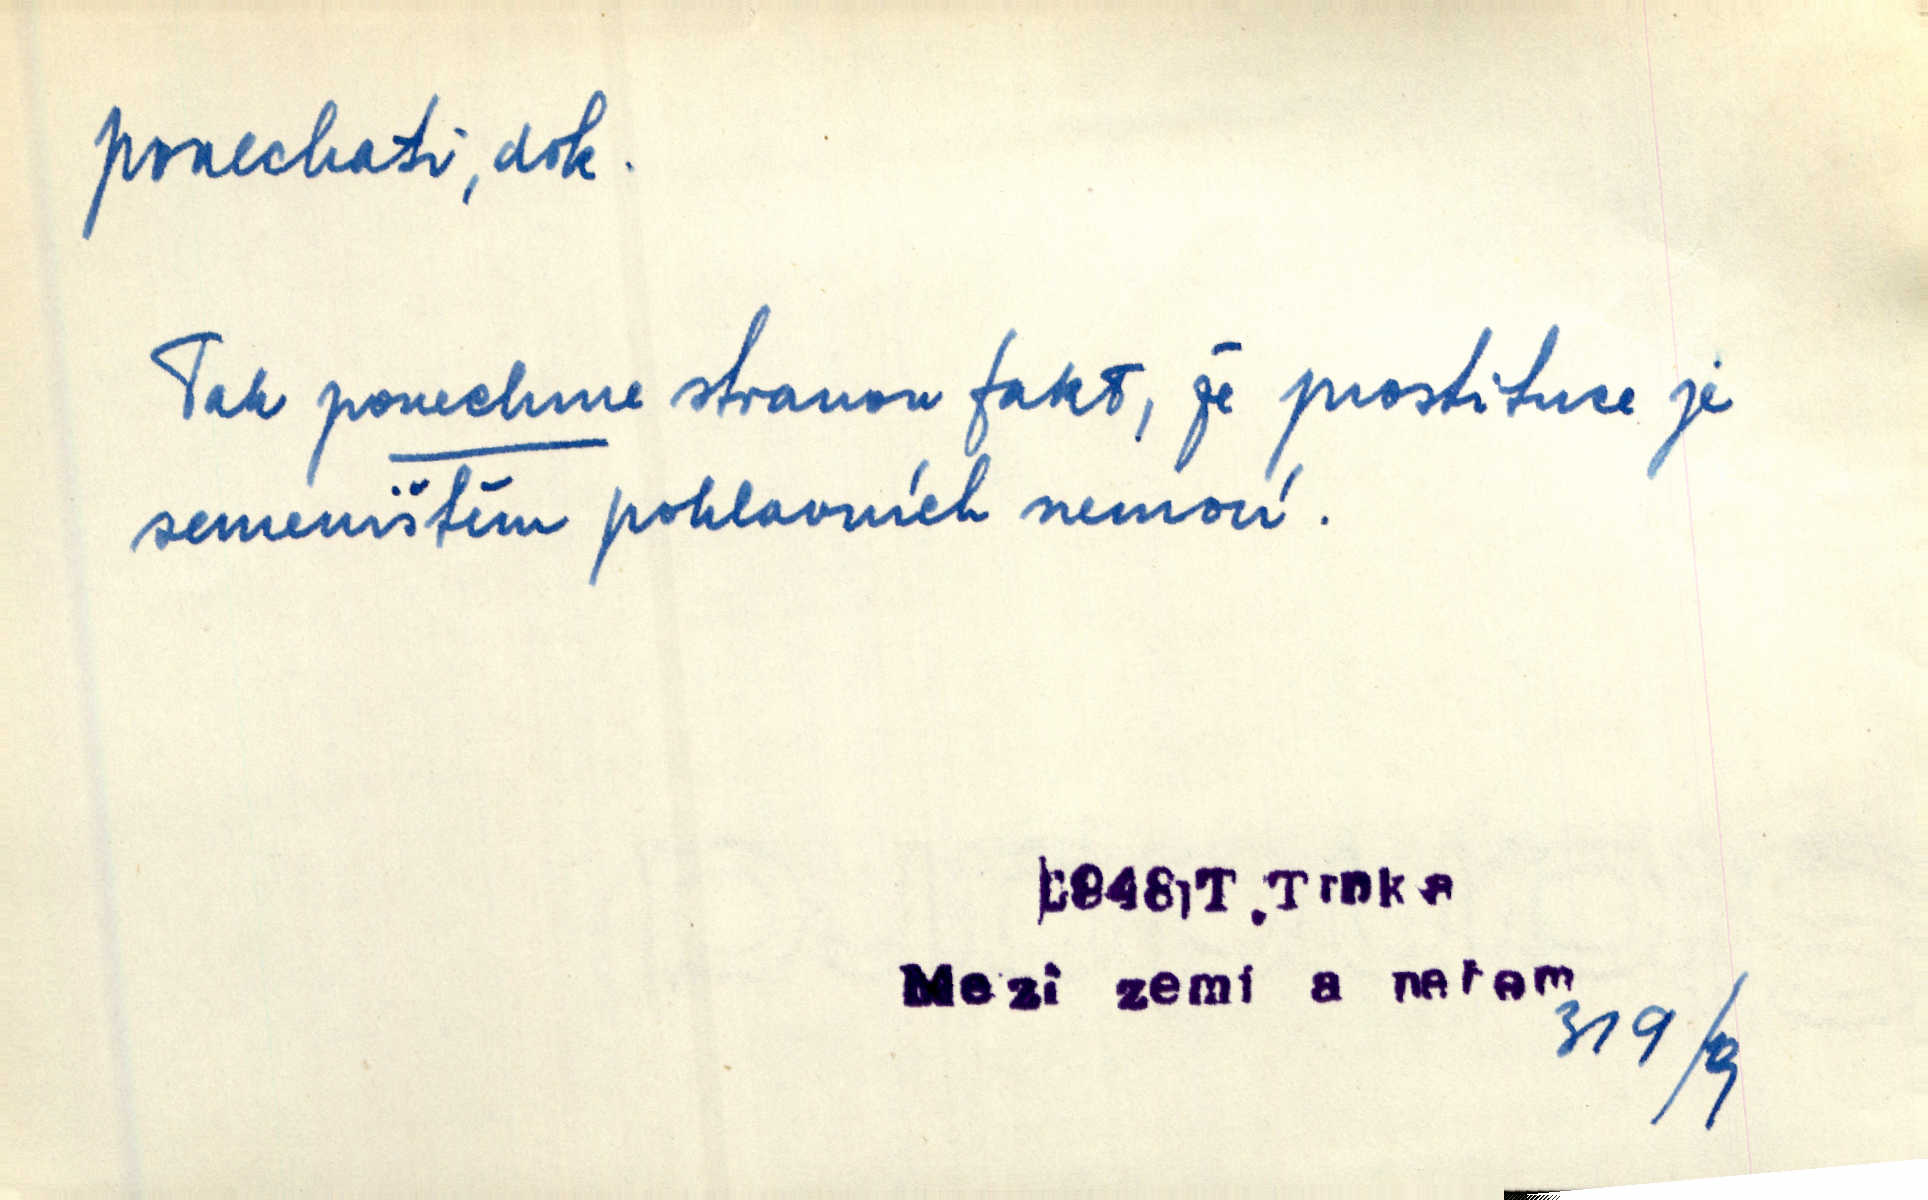 ponechati, dok.
Tak ponechme stranou fakt, že prostituce je
semeništěm pohlavních nemocí.
1948, T. Trnka
Mezi zemí a
319/